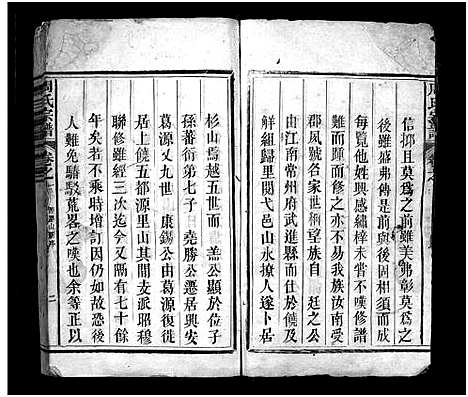 信抑且莫爲之前雖美弗彰莫爲之
後雖盛弗傳是前與後固相須而成
每覽他姓興感繡梓未嘗不嘆修譜
之難而修之亦不易我族汝南受
郡夙號名家世傳望族自 廷之公
由江南常州府武進縣而仕於饒及
解組歸里閱弋邑山水撩人遂卜居
杉山焉越五世而 蓋公顯於位子
孫蕃衍第七子 堯勝公遷居興安
葛源又九世 康錫公由葛源復徙
居上饒五都源里山其間支派昭穆
聯修雖經三次迄今又隔有七十餘
年矣若不乘時增訂因仍如故恐後
人難免驕駁荒畧之嘆也余等正以
周氏宗譜
卷之
二